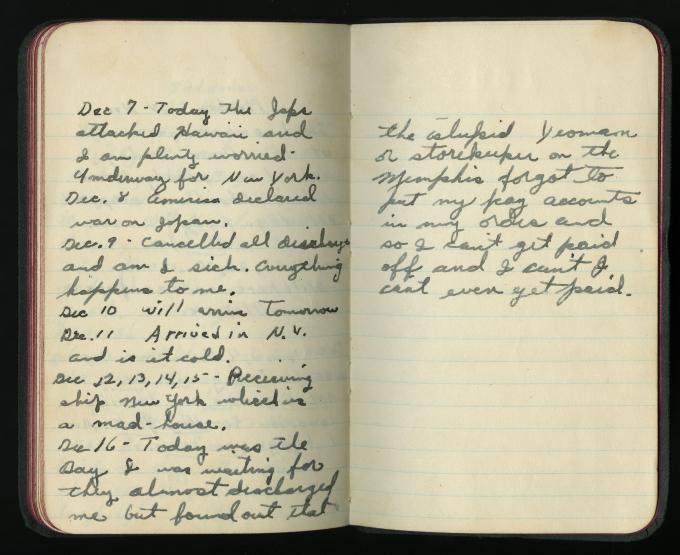 Dec 7 - Today The Japs
attacked Hawaii and
I am plenty worried.
Underway for New York.
Dec. 8 America declared
war on Japan.
Dec. 9 - Cancelled all discharges
and am I sick. Everything
happens to me.
Dec 10 will arrive Tomorrow
Dec. 11 Arrived in N.Y.
and is it cold.
Dec 12, 13, 14, 15 - Receiving
ship New York which is
a mad-house.
Dec 16 - Today was the
Day I was waiting for
they almost discharged
me but found out that
the stupid Yeoman
or storekeeper on the
Memphis forgot to
put my pay accounts
in my orders and
so I can't get paid
off and I can't I
can't even get paid.